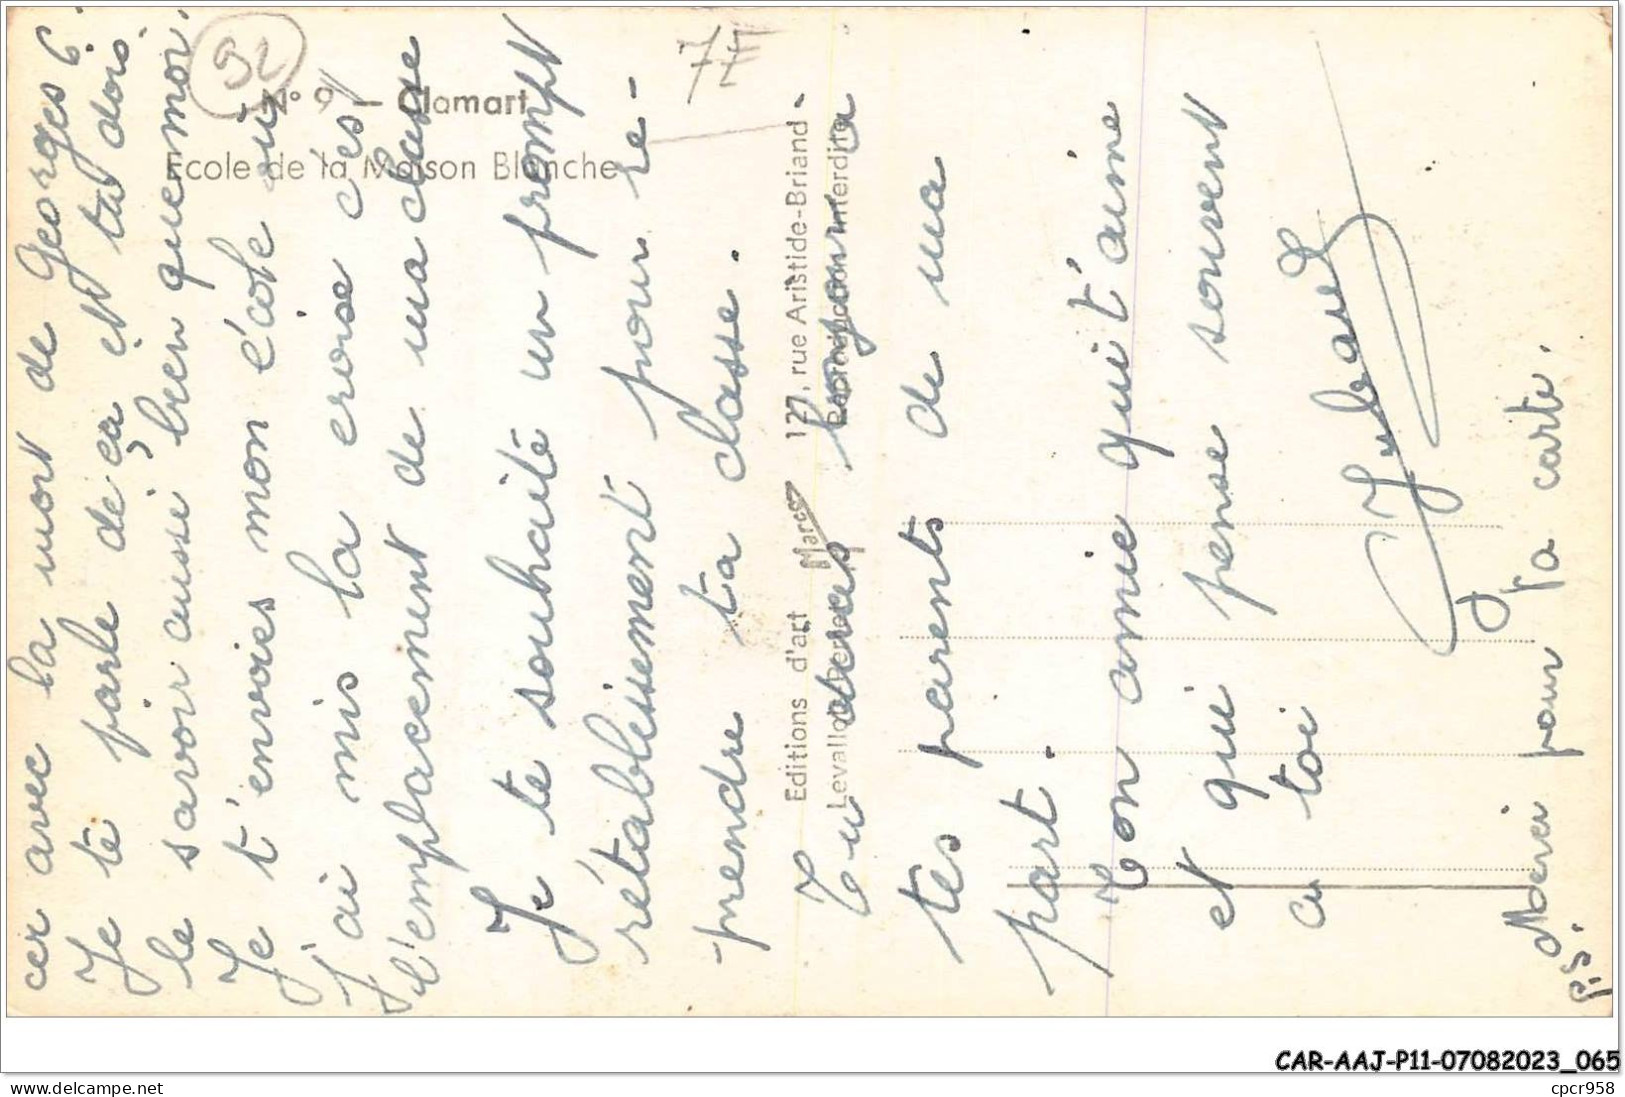 cer avec la mort de Georges 6.
Je te parle de ça et tu dois
le savoir aussi bien que moi.
Je t'envoies mon école où
j'ai mis la croise c'est
l'emplacement de ma classe
Je te souhaité un prompt
rétablissement pour re-
prendre ta classe.
Tu diras bonjour à
tes parents de ma
part.
Ton amie qui t'aime
et qui pense souvent
à toi
P.S. Merci pour ta carte.
92
7E
N° 9 — Clamart
Ecole de la Maison Blanche
Editions d'art Marco 127, rue Aristide-Briand -
Levallois-Perret Reproduction Interdite
CAR-AAJ-P11-07082023_065
www.delcampe.net
cpcr958